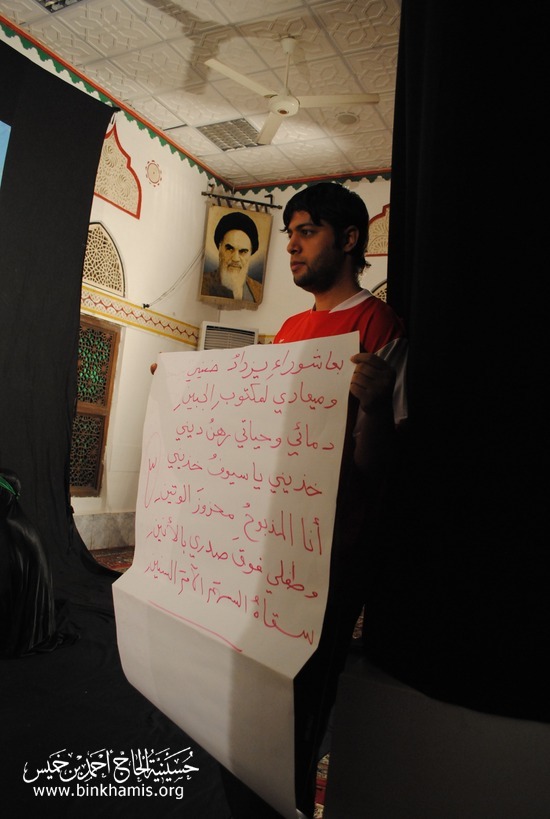 بعاشوراءِ يزدادُ حنيني
وميعادي لمكتوب الجبين
دمائي وحياتي رهنُ ديني
خذيني ياسيوفُ خذيني
أنا المذبوحُ محزوزَ الوتين
وطفلي فوق صدري بالأنين
سقاهُ السهم
٣
حسينية الحاج أحمد بن خميس
www.binkhamis.org